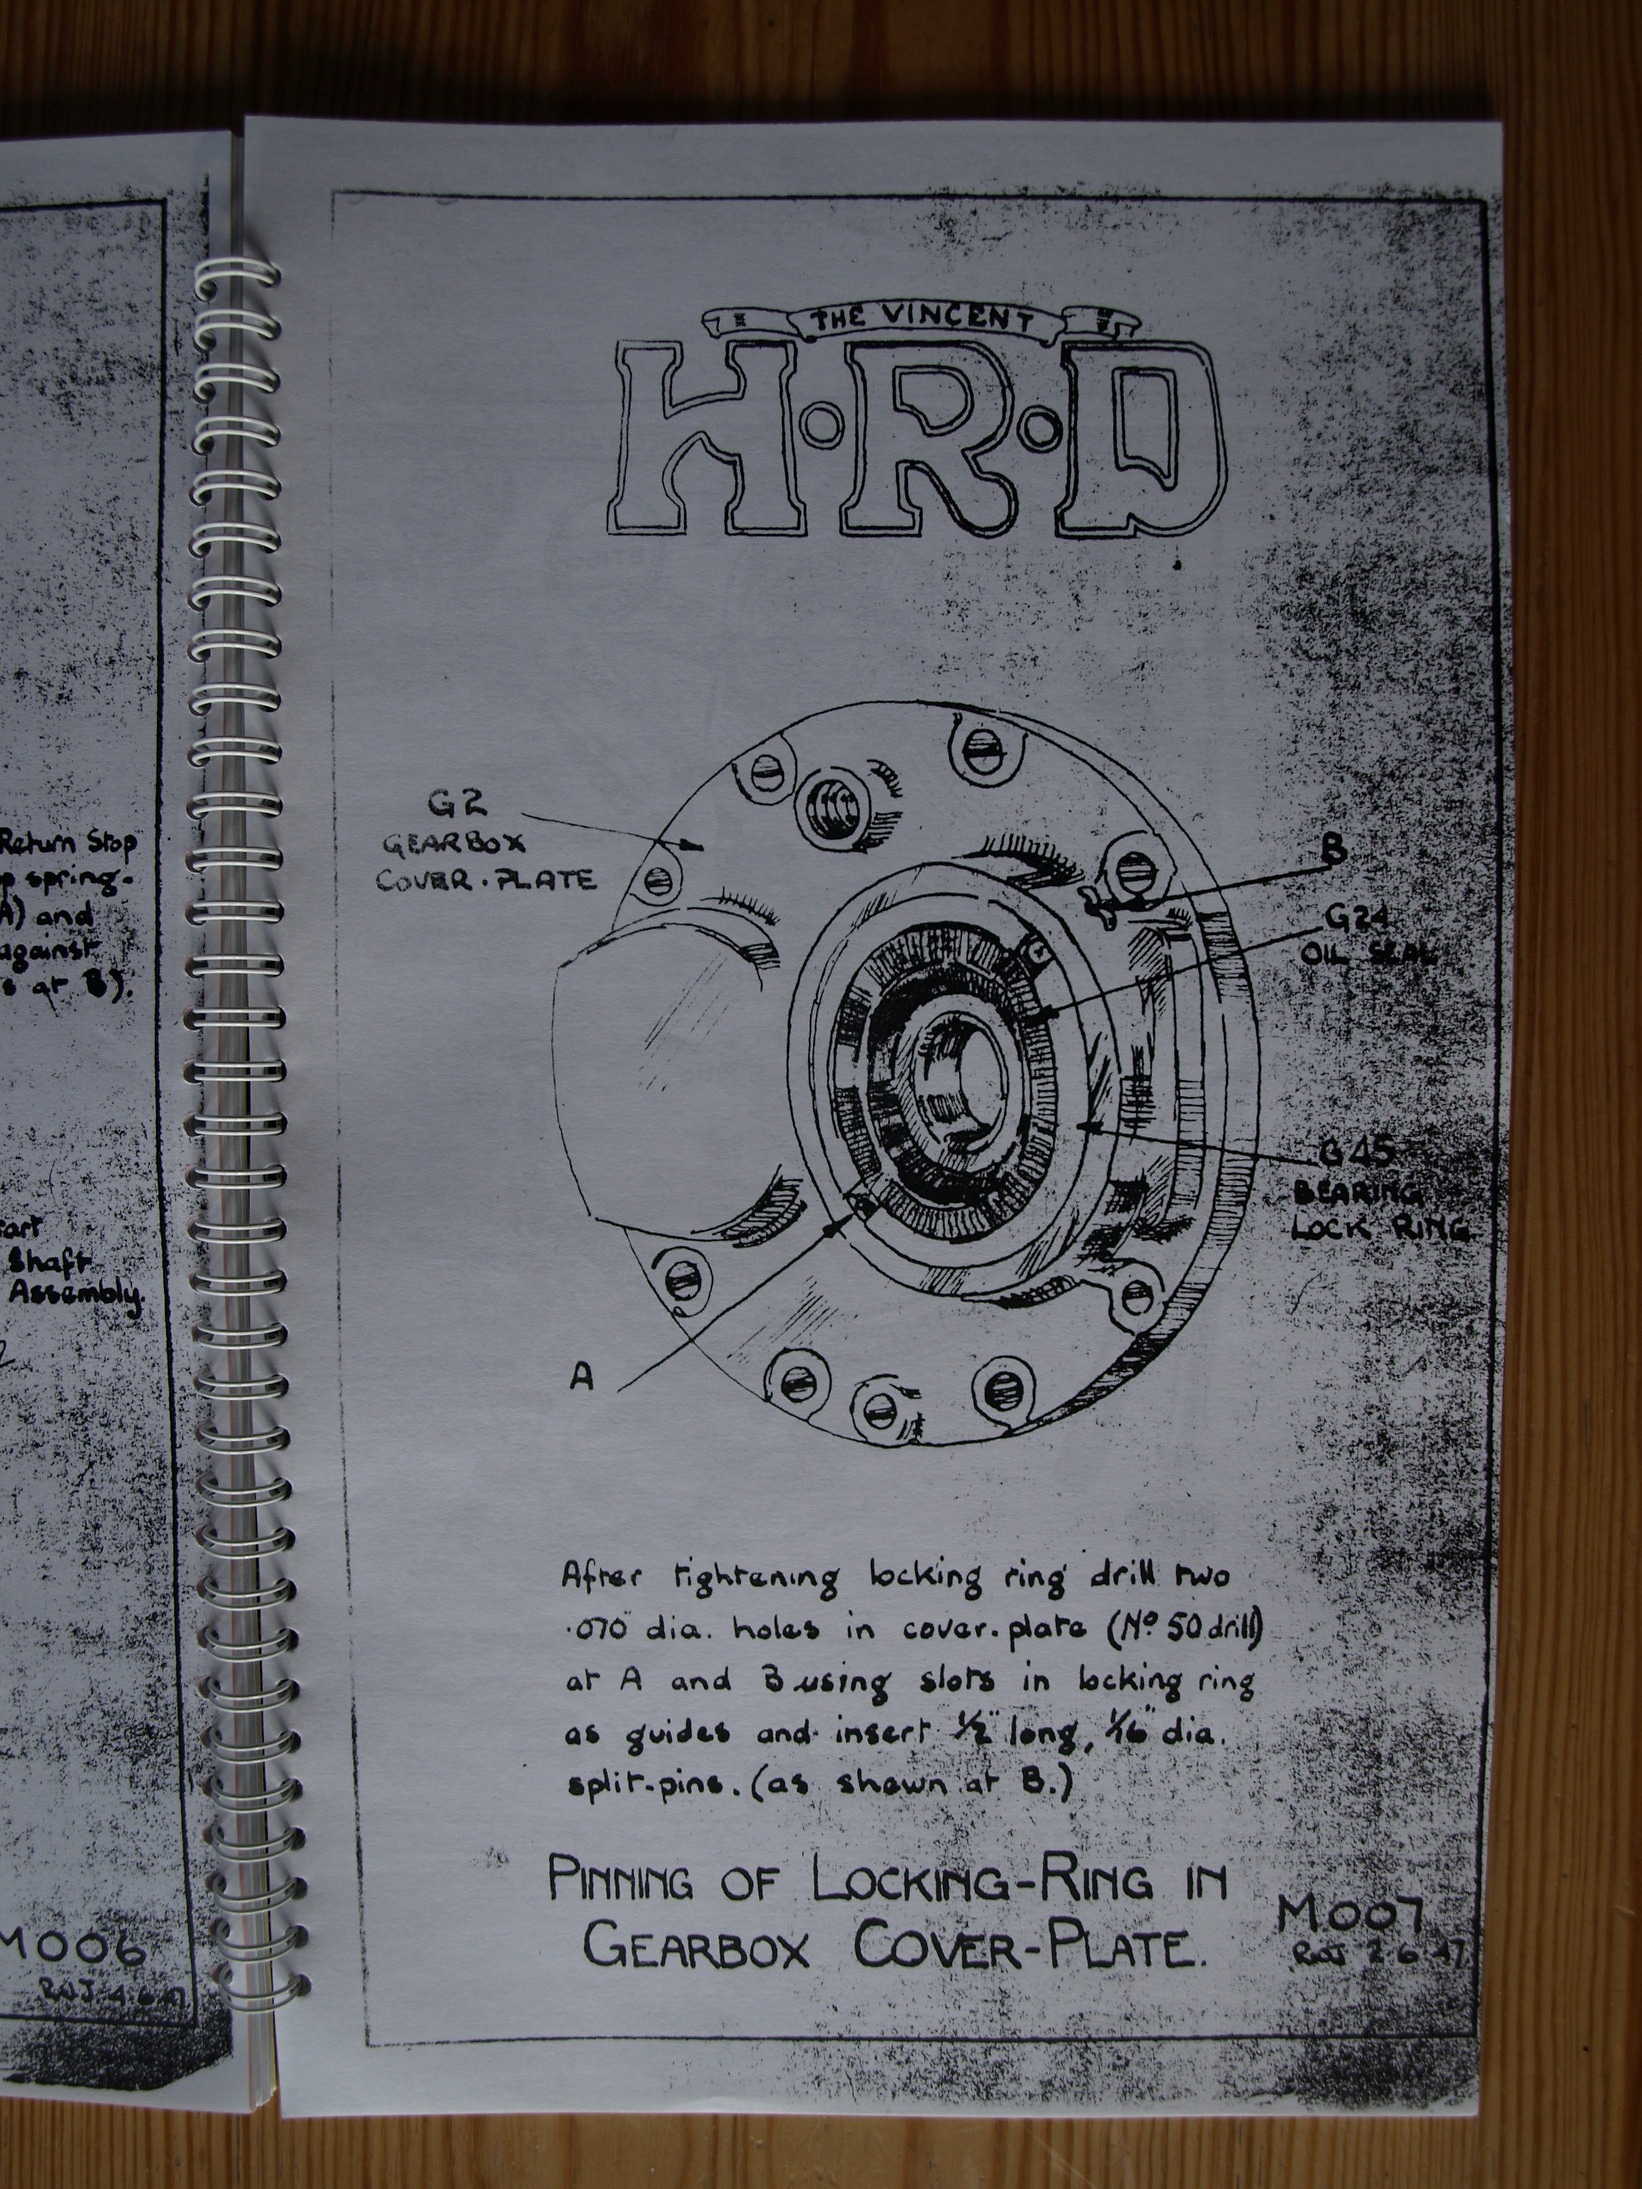 Return Stop
spring-
A) and
against
s at B).
Shaft
Assembly.
M006
THE VINCENT
H·R·D
G2
GEARBOX
COVER-PLATE
B
G24
OIL SEAL
G45
BEARING
LOCK RING
A
After tightening locking ring drill two
.070" dia. holes in cover-plate (No 50 drill)
at A and B using slots in locking ring
as guides and insert ½" long, 1/16" dia.
split-pins. (as shewn at B.)
PINNING OF LOCKING-RING IN
GEARBOX COVER-PLATE.
M007
2.6.47